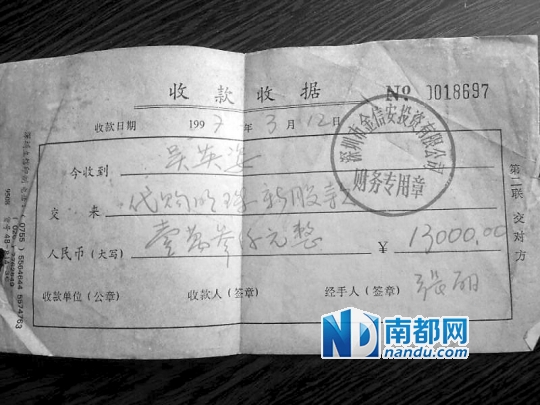 收款收据 № 0018697
收款日期 1997年3月12日
深圳市金信安投资有限公司
财务专用章
今收到 吴英姿
交来 代购 新股
人民币（大写） 壹万叁仟元整 ￥ 13000.00
收款单位（公章） 收款人（签章） 经手人（签章） 张丽
第二联交对方
(0755) 5564644 5574763
南都网
nandu.com